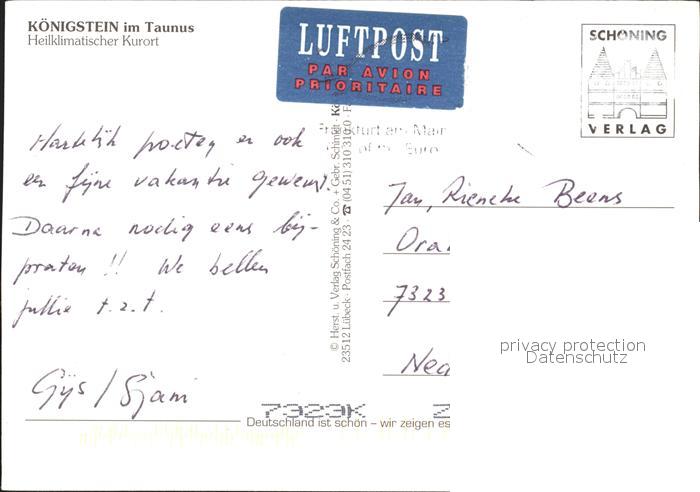 KÖNIGSTEIN im Taunus
Heilklimatischer Kurort
LUFTPOST
PAR AVION
PRIORITAIRE
SCHÖNING
VERLAG
Frankfurt am Main
Euro
Hartelijk groeten en ook
een fijne vakantie gewenst.
Daarna nodig eens bij-
praten !! We bellen
jullie t.z.t.
Gijs /
© Herst. u. Verlag Schöning & Co. + Gebr. Schmidt
23512 Lübeck · Postfach 24 23 · ☎ (04 51) 310 310
Jan, Rieneke Beens
Ora
7323
Ned
privacy protection
Datenschutz
7323K
Deutschland ist schön – wir zeigen es